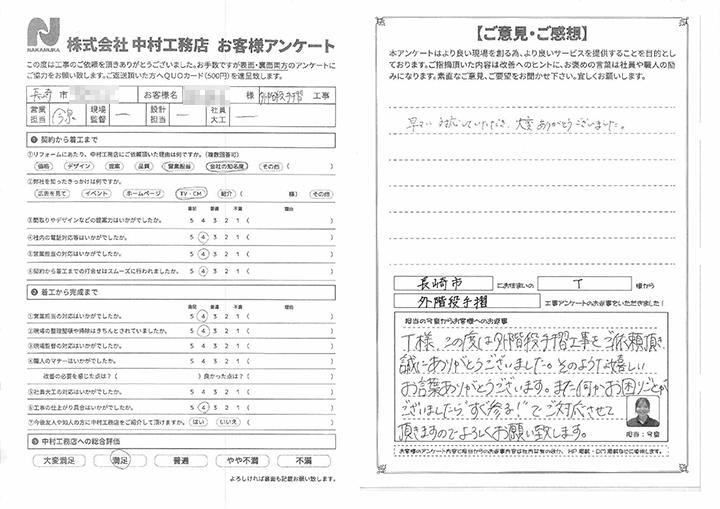 NAKAMURA
株式会社 中村工務店 お客様アンケート
この度は工事のご依頼を頂きありがとうございました。お手数ですが表面・裏面両方のアンケートに
ご協力をお願い致します。ご返送頂いた方へQUOカード(500円)を進呈致します。
長崎 市 お客様名 様 外階段手摺 工事
営業担当 今泉 現場監督 ー 設計担当 ー 社員大工 ー
❶ 契約から着工まで
①リフォームにあたり、中村工務店にご依頼頂いた理由は何ですか。(複数回答可)
価格 デザイン 提案 品質 営業担当 会社の知名度 その他( )
②弊社を知ったきっかけは何ですか。
広告を見て イベント ホームページ TV・CM 紹介( 様) その他
最記 普通 不満 理由
③間取りやデザインなどの提案力はいかがでしたか。 5 4 3 2 1 ( )
④社内の電話対応等はいかがでしたか。 5 4 3 2 1 ( )
⑤営業担当の対応はいかがでしたか。 5 4 3 2 1 ( )
⑥契約から着工までの打合せはスムーズに行われましたか。 5 4 3 2 1 ( )
❷ 着工から完成まで
普通 不満 理由
①営業担当の対応はいかがでしたか。 5 4 3 2 1 ( )
②現場の整理整頓や掃除はきちんとされていましたか。 5 4 3 2 1 ( )
③現場監督の対応はいかがでしたか。 5 4 3 2 1 ( )
④職人のマナーはいかがでしたか。 5 4 3 2 1 ( )
改善の必要を感じた点は?( )良かった点は?( )
⑤社員大工の対応はいかがでしたか。 5 4 3 2 1 ( )
⑥工事の仕上がり具合はいかがでしたか。 5 4 3 2 1 ( )
⑦今後友人や知人の方に中村工務店をご紹介して頂けますか。 はい いいえ ( )
❸ 中村工務店への総合評価
大変満足 満足 普通 やや不満 不満
よろしければ裏面も記載お願い致します。
【ご意見・ご感想】
本アンケートはより良い現場を創る為、より良いサービスを提供することを目的と
しております。ご指摘頂いた内容は改善へのヒントに、お褒めの言葉は社員や職人の励
みになります。素直なご意見、ご要望をお聞かせ下さい。宜しくお願いします。
早々に対応していただき、大変ありがとうございました。
長崎市 にお住まいの T 様から
外階段手摺 工事アンケートのお返事をいただきました!
担当の今泉からお客様へのお返事
T様、この度は外階段手摺工事をご依頼頂き
誠にありがとうございました。そのような嬉しい
お言葉ありがとうございます。また何かお困りごとが
ございましたら"すぐ今泉!"でご対応させて
頂きますのでよろしくお願い致します。
担当:今泉